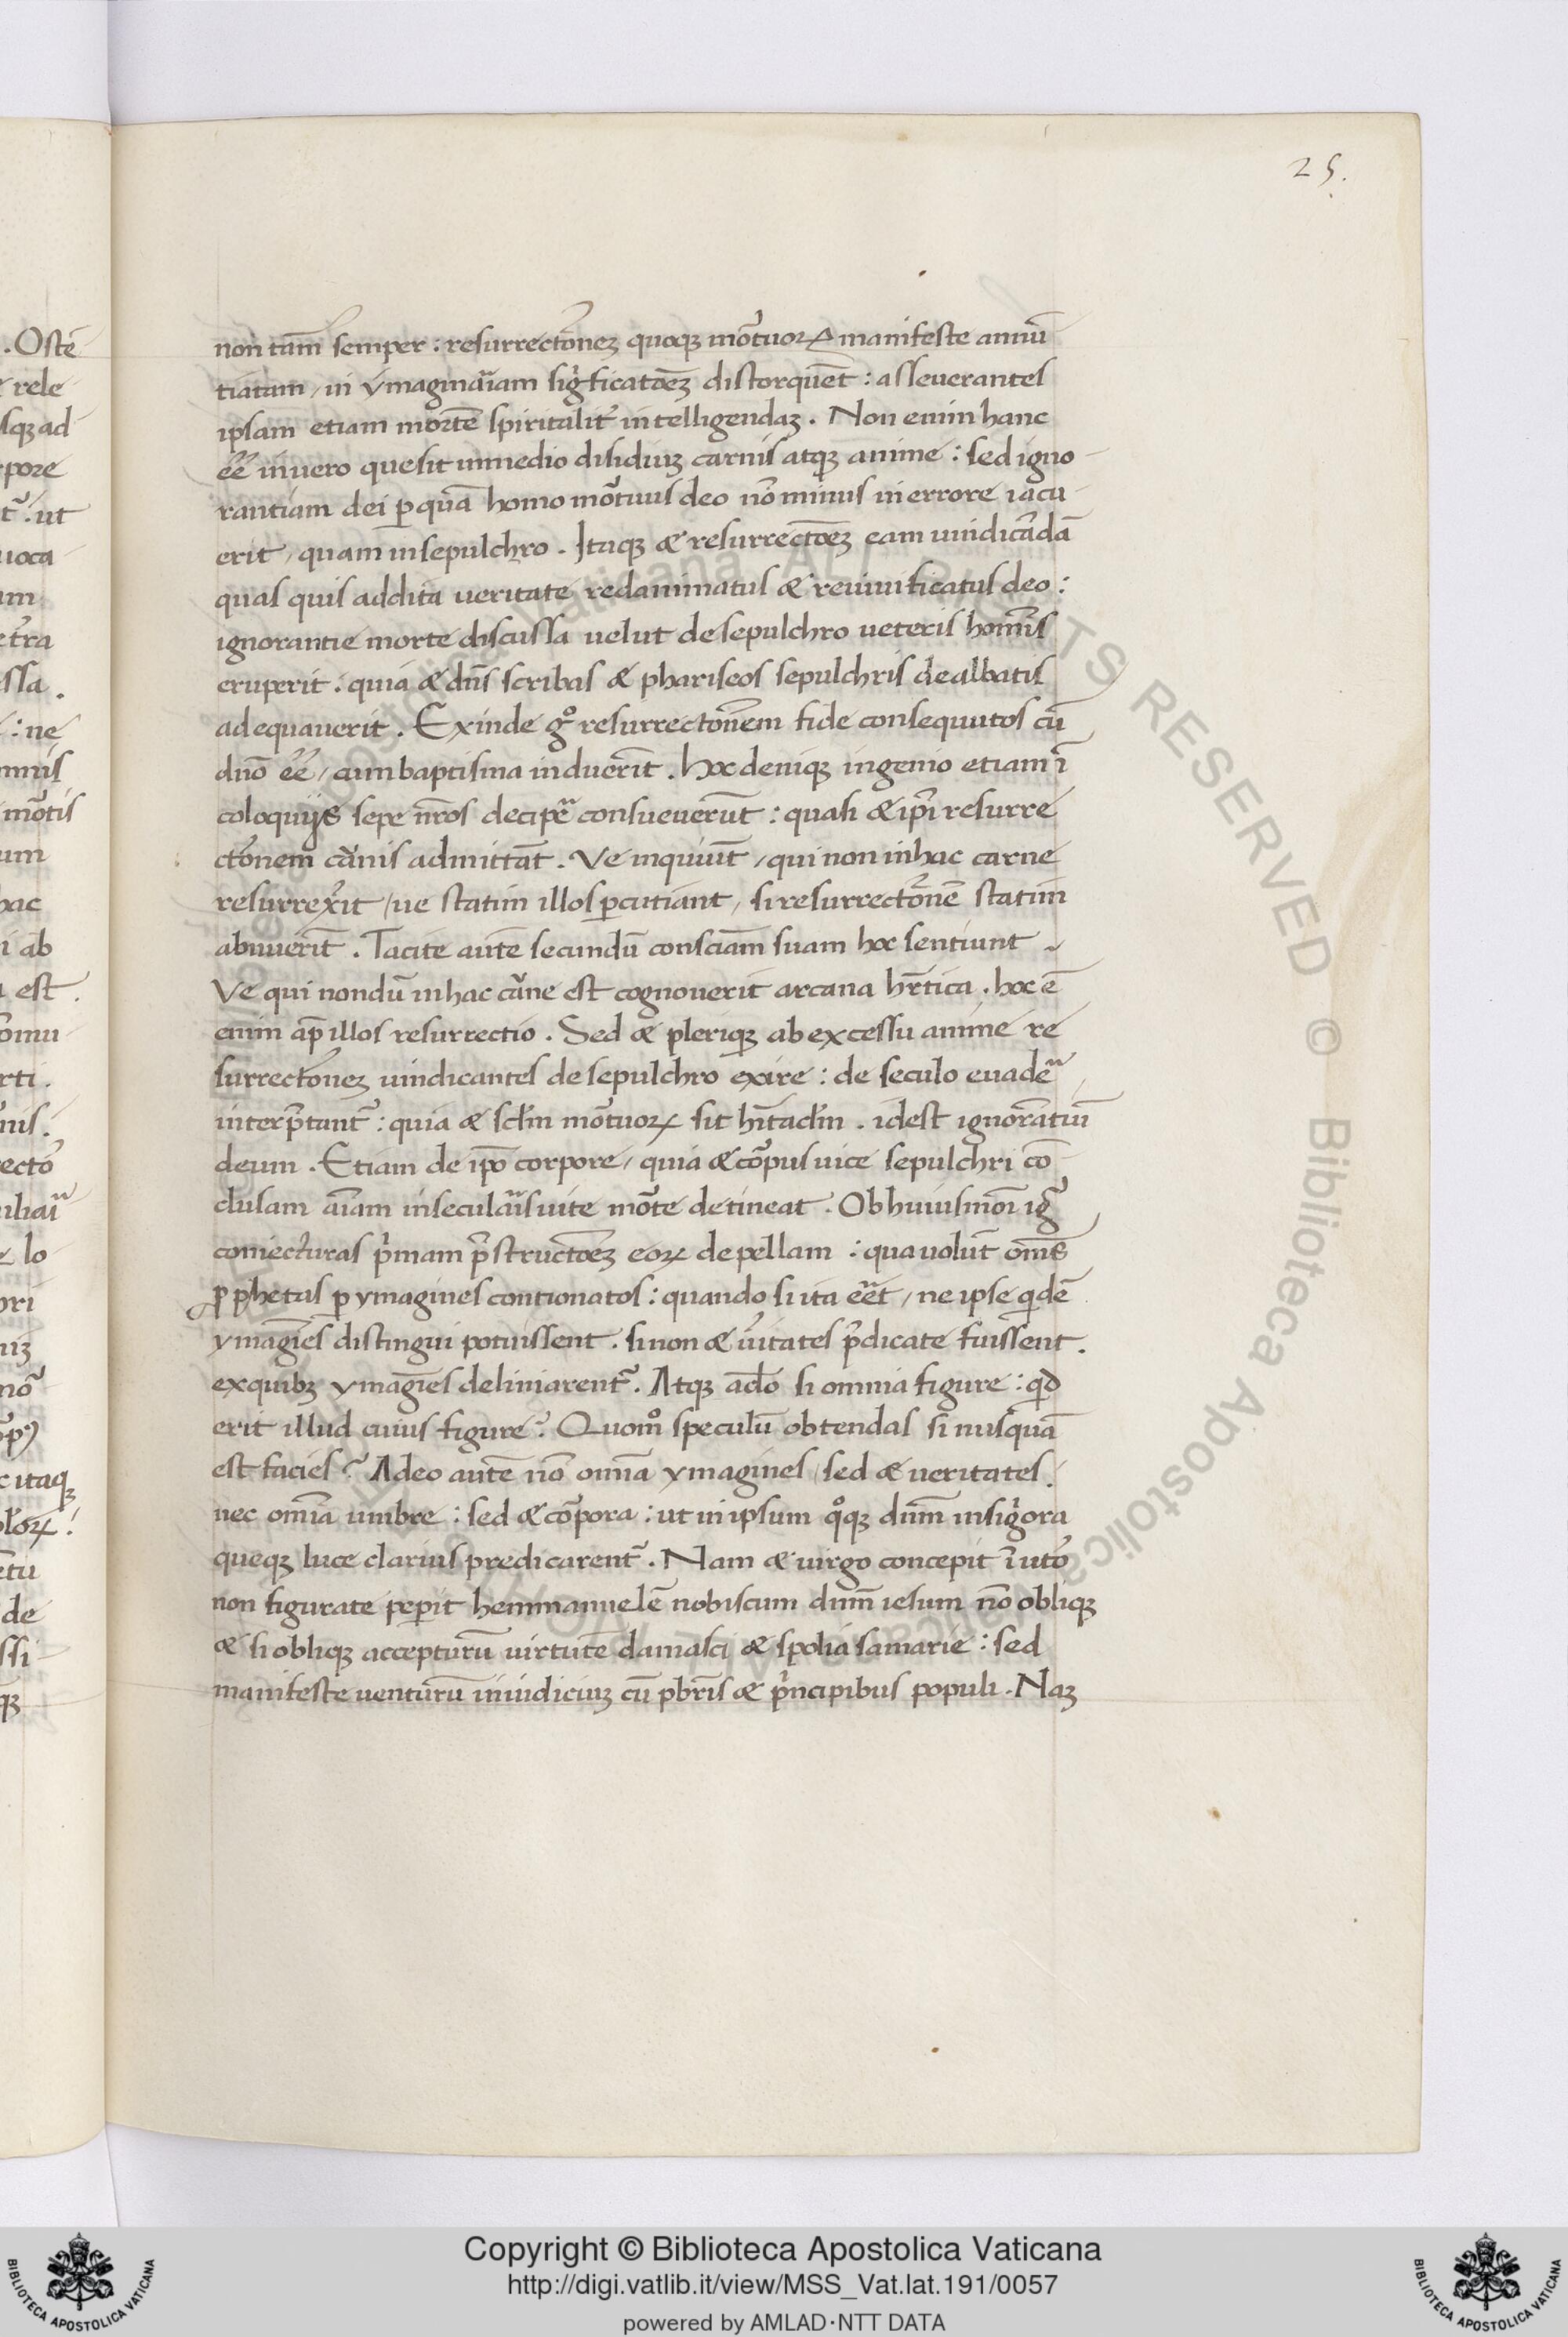 25.
non tam̄ semper : resurrectōnez quoqꝫ mōtuoꝝ manifeste annū
tiatam / in ymaginaͣiam sigͥficatōeꝫ distorquēt : asseverantes
ipsam etiam mortē spiritalit᷑ intelligendaꝫ . Non enim hanc
ēē in vero que sit in medio disidiuꝫ carnis atqꝫ anime : sed igno-
rantiam dei ꝑ quā homo mōtuus deo nō minus in errore iacu-
erit / quam in sepulchro . Itaqꝫ & resurrectōeꝫ eam uindicādā
quas quis addita ueritate redanimatus & reuiuificatus deo :
ignorantie morte discussa uelut de sepulchro ueteris hom̄is
eruperit . quia & dn̄s scribas & phariseos sepulchris dealbatis
adequaverit . Exinde gͦ resurrectōnem fide consequutos cū
dn̄o ēē / cum baptisma induerīt . Hoc deniqꝫ ingenio etiam ī
coloquijs sepe nr̄os decipeͣ consueuerūt : quasi & ip̄i resurre
ctōnem caͣnis admittāt . Ve inquiūt / qui non in hac carne
resurrex̄it / ue statim illos ꝑcutiant / si resurrectōnē statim
abnuerīt . Tacite autē secundū consciām suam hoc sentiunt
Ve qui nondū in hac caͣne est cognouerit arcana hr̄etica . hoc ē
enim ap̄ illos resurrectio . Sed & pleriqꝫ ab excessu anime re
surrectōneꝫ uindicantes de sepulchro exire : de seculo euadeͣ
interp̄tant᷑ : quia & sc̄lm mōtuoꝝ sit hītaclm . idest ignorātiū
deum . Etiam de ip̄o corpore / quia & cōpus uice sepulchri cō
clusam aīam in seculaͣis uite mōte detineat . Ob huiusmōi igͣ
coniecturas pͥmam p̄structōeꝫ eoꝝ depellam : qua uolūt om̄s
ꝓphetas ꝑ ymagines contionatos : quando si ita eēt / ne ipse qͥdē
ymagīes distingui potuissent . si non & ūitates p̄dicate fuissent .
ex quibꝫ ymagīes deliniarent᷑ . Atqꝫ adō si omnia figure : qͥd
erit illud cuius figure ? Quomͦ speculū obtendas si nusquā
est facies ? Adeo autē nō omīa ymagines / sed & ueritates .
nec omīa umbre : sed & cōpora : ut in ipsum qͦqꝫ dn̄m insigͥora
queqꝫ luce clarius predicarent᷑ . Nam & uirgo concepit ī utō
non figurate peꝑit hemmanuelē nobiscum dn̄m iesum nō obliqꝫ
& si obliqꝫ accepturū uirtutē damasci & spolia samarie : sed
manifeste uenturū in iudiciuꝫ cū pb̄ris & pͥncipibus populi . Naꝫ
. Ostē
rele
sqꝫ ad
pore
ut
uoca-
est
omu-
rti .
lo
itaqꝫ
de
ssi-
qꝫ
Copyright © Biblioteca Apostolica Vaticana
http://digi.vatlib.it/view/MSS_Vat.lat.191/0057
powered by AMLAD·NTT DATA
BIBLIOTECA APOSTOLICA VATICANA
BIBLIOTECA APOSTOLICA VATICANA